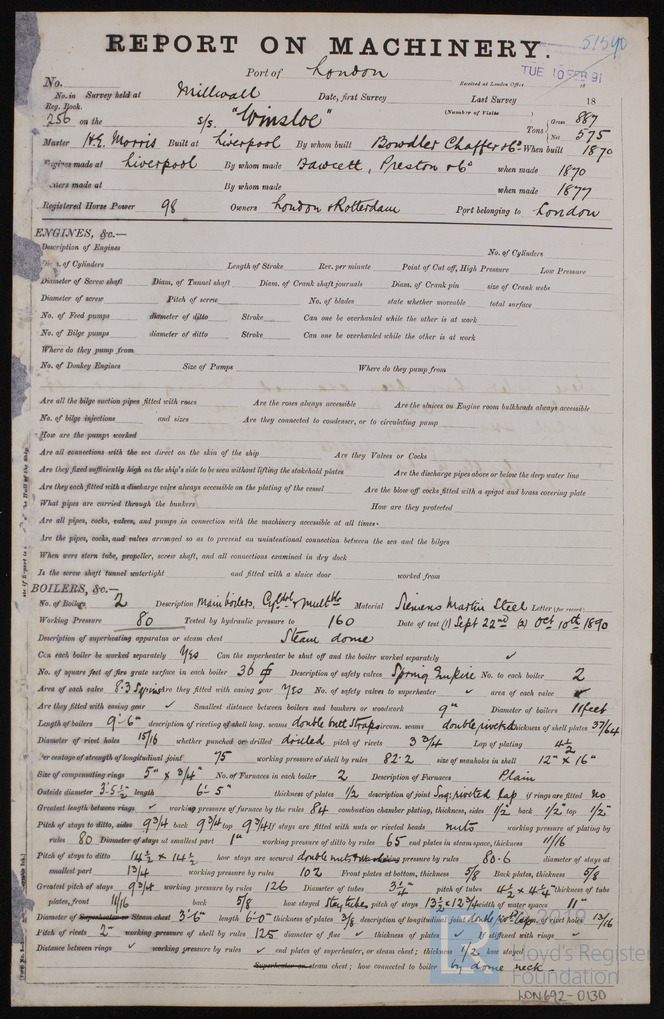 51590
REPORT ON MACHINERY.
Port of London
TUE 10 FEB 91
No.
Received at London Office 18
No. in Survey held at Millwall Date, first Survey Last Survey 18
Reg. Book. (Number of Visits
256 on the s/s. "Winsloe" Tons Gross 887 Net 575
Master H.E. Morris Built at Liverpool By whom built Bowdler Chaffer & Co When built 1870
Engines made at Liverpool By whom made Fawcett, Preston & Co when made 1870
Boilers made at By whom made when made 1877
Registered Horse Power 98 Owners London & Rotterdam Port belonging to London
ENGINES, &c.—
Description of Engines No. of Cylinders
Diam. of Cylinders Length of Stroke Rev. per minute Point of Cut off, High Pressure Low Pressure
Diameter of Screw shaft Diam. of Tunnel shaft Diam. of Crank shaft journals Diam. of Crank pin size of Crank webs
Diameter of screw Pitch of screw No. of blades state whether moveable total surface
No. of Feed pumps diameter of ditto Stroke Can one be overhauled while the other is at work
No. of Bilge pumps diameter of ditto Stroke Can one be overhauled while the other is at work
Where do they pump from
No. of Donkey Engines Size of Pumps Where do they pump from
Are all the bilge suction pipes fitted with roses Are the roses always accessible Are the sluices on Engine room bulkheads always accessible
No. of bilge injections and sizes Are they connected to condenser, or to circulating pump
How are the pumps worked
Are all connections with the sea direct on the skin of the ship Are they Valves or Cocks
Are they fixed sufficiently high on the ship's side to be seen without lifting the stokehold plates Are the discharge pipes above or below the deep water line
Are they each fitted with a discharge valve always accessible on the plating of the vessel Are the blow off cocks fitted with a spigot and brass covering plate
What pipes are carried through the bunkers How are they protected
Are all pipes, cocks, valves, and pumps in connection with the machinery accessible at all times
Are the pipes, cocks, and valves arranged so as to prevent an unintentional connection between the sea and the bilges
When were stern tube, propeller, screw shaft, and all connections examined in dry dock
Is the screw shaft tunnel watertight and fitted with a sluice door worked from
BOILERS, &c.—
No. of Boilers 2 Description Main boilers, Cyldcl & multble Material Siemens Martin Steel Letter (for record)
Working Pressure 80 Tested by hydraulic pressure to 160 Date of test (1) Sept 22nd (2) Oct 10th 1890
Description of superheating apparatus or steam chest Steam dome
Can each boiler be worked separately Yes Can the superheater be shut off and the boiler worked separately ✓
No. of square feet of fire grate surface in each boiler 36 Description of safety valves Spring No. to each boiler 2
Area of each valve 8.3 Sq ins Are they fitted with easing gear Yes No. of safety valves to superheater ✓ area of each valve ✓
Are they fitted with easing gear ✓ Smallest distance between boilers and bunkers or woodwork 9" Diameter of boilers 11 feet
Length of boilers 9'-6" description of riveting of shell long. seams double butt straps circum. seams double riveted thickness of shell plates 37/64
Diameter of rivet holes 15/16 whether punched or drilled drilled pitch of rivets 3 3/4 Lap of plating 4 1/2
Percentage of strength of longitudinal joint 75 working pressure of shell by rules 82.2 size of manholes in shell 12" × 16"
Size of compensating rings 5" × 3/4" No. of Furnaces in each boiler 2 Description of Furnaces Plain
Outside diameter 3'-5 1/2" length 6'-5" thickness of plates 1/2 description of joint Sng: riveted lap if rings are fitted no
Greatest length between rings ✓ working pressure of furnace by the rules 84 combustion chamber plating, thickness, sides 1/2" back 1/2" top 1/2"
Pitch of stays to ditto, sides 9 3/4 back 9 3/4 top 9 3/4 If stays are fitted with nuts or riveted heads nuts working pressure of plating by
rules 80 Diameter of stays at smallest part 1" working pressure of ditto by rules 65 end plates in steam space, thickness 11/16
Pitch of stays to ditto 14 1/2 × 14 1/2 how stays are secured double nuts working pressure by rules 80.6 diameter of stays at
smallest part 1 3/4 working pressure by rules 102 Front plates at bottom, thickness 5/8 Back plates, thickness 5/8
Greatest pitch of stays 9 3/4 working pressure by rules 126 Diameter of tubes 3 1/4" pitch of tubes 4 1/2 × 4 1/4" thickness of tube
plates, front 11/16 back 5/8 how stayed Stay tubes pitch of stays 13 1/2 × 12 3/4 width of water spaces 11"
Diameter of Superheater or Steam chest 3'-6" length 6'-0" thickness of plates 3/8 description of longitudinal joint double riv lap diam. of rivet holes 13/16
Pitch of rivets 2" working pressure of shell by rules 125 diameter of flue ✓ thickness of plates ✓ If stiffened with rings ✓
Distance between rings ✓ working pressure by rules ✓ end plates of superheater, or steam chest; thickness 1/2 how stayed
Superheater or steam chest; how connected to boiler by dome neck.
Lloyd's Register
Foundation
LON692-0130